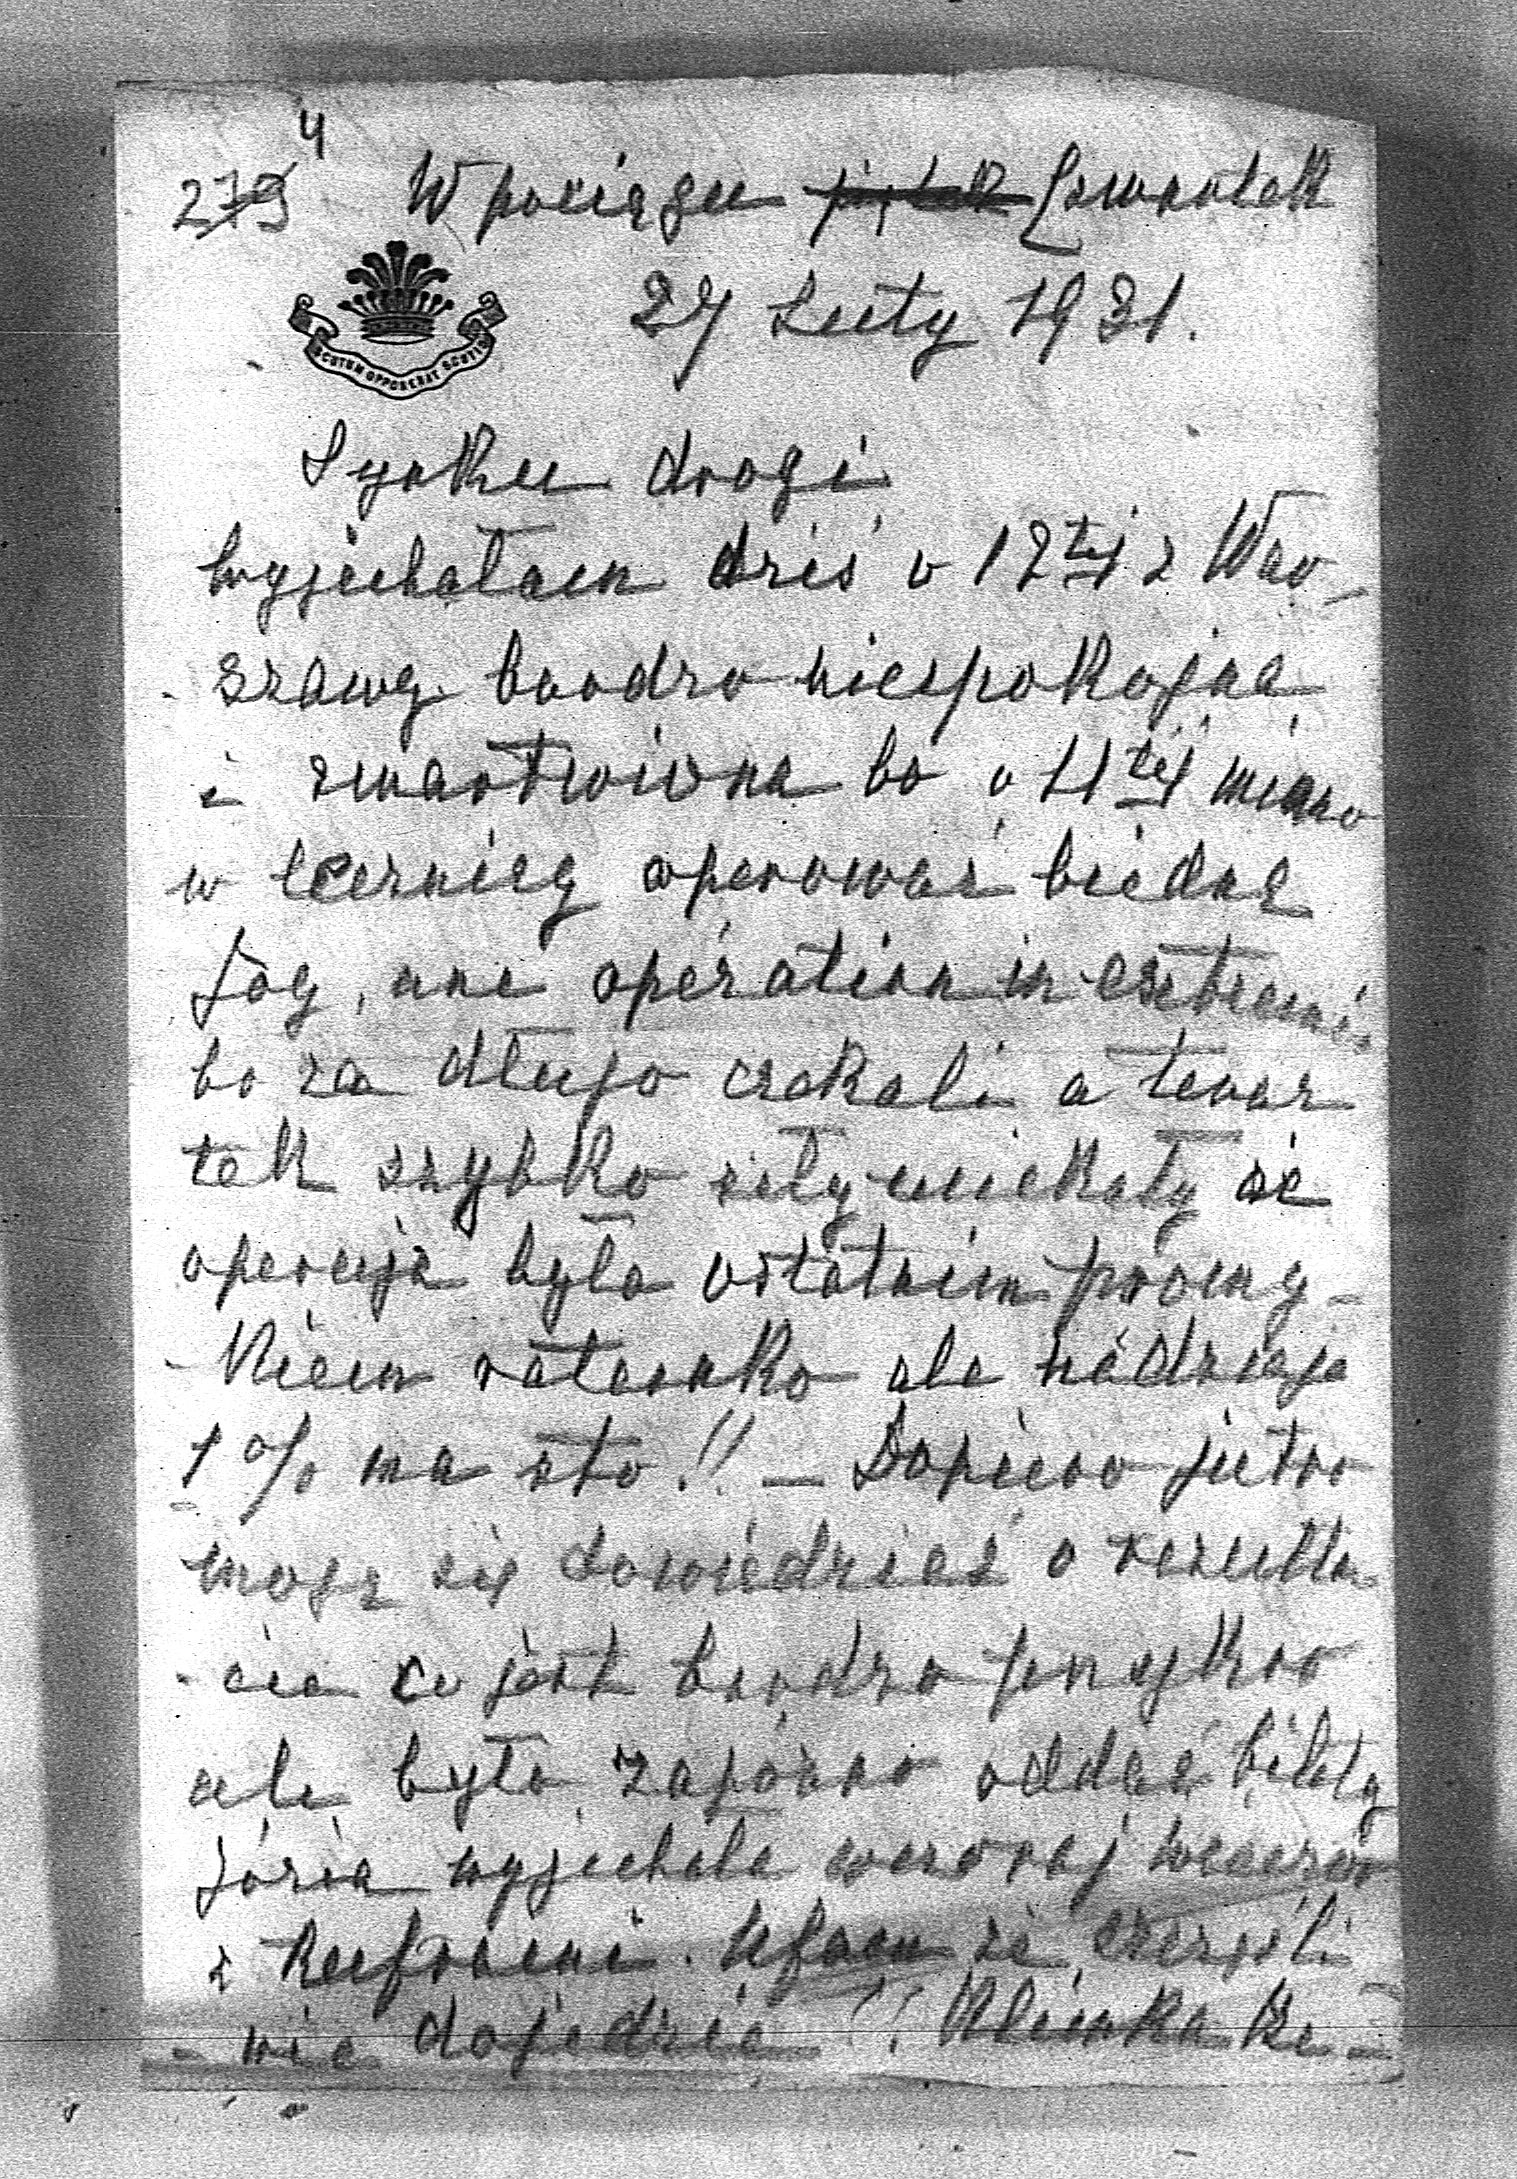 4
279 W pociągu piątek Czwartek
SCUTUM OPPONEBAT SCUTIS
27 Luty 1931.
Synku drogi
wyjechałam dziś o 12tej z War-
szawy bardzo niespokojna
i zmartwiona bo o 11tej miano
w lecznicy operować biedną
une opération in extremis
bo za długo czekali a teraz
tak szybko siły uciekały że
operacja była ostatnim promy-
kiem ratunku ale nadzieja
1% na sto!! — Dopiero jutro
mogę się dowiedzieć o rezulta-
cie co jest bardzo przykro
ale było zapóźno oddać bilety
Józia wyjechała wczoraj wieczór
z kuframi. Ufam że szczęśli-
wie dojedzie!! Klimka